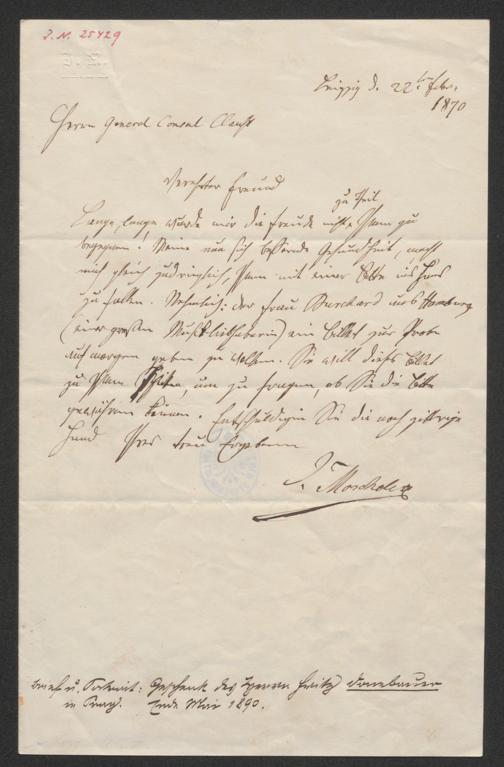 J. N. 25429
Leipzig d. 22t Febr.
1870
Herrn General Consul Clauss
Verehrter Freund
zu Theil
Lange, lange wurde mir die Freude nicht, Ihnen zu
begegnen! Meine nun sich bessernde Gesundheit, macht
mich gleich zudringlich, Ihnen mit einer Bitte ins Haus
zu fallen. Nehmlich: der Frau Burchard aus Hamburg
(einer großen Musikliebhaberin) ein Billet zur Probe
auf morgen geben zu wollen. Sie will dieses Billet
zu Ihnen schicken, um zu fragen, ob Sie die Bitte
gewähren können. Entschuldigen Sie die noch zittrige
Hand Ihres treu Ergebenen
J. Moscheles
Brief u. Portrait: Geschenk des Herrn Fritz Donebauer
in Prag. Ende Mai 1890.